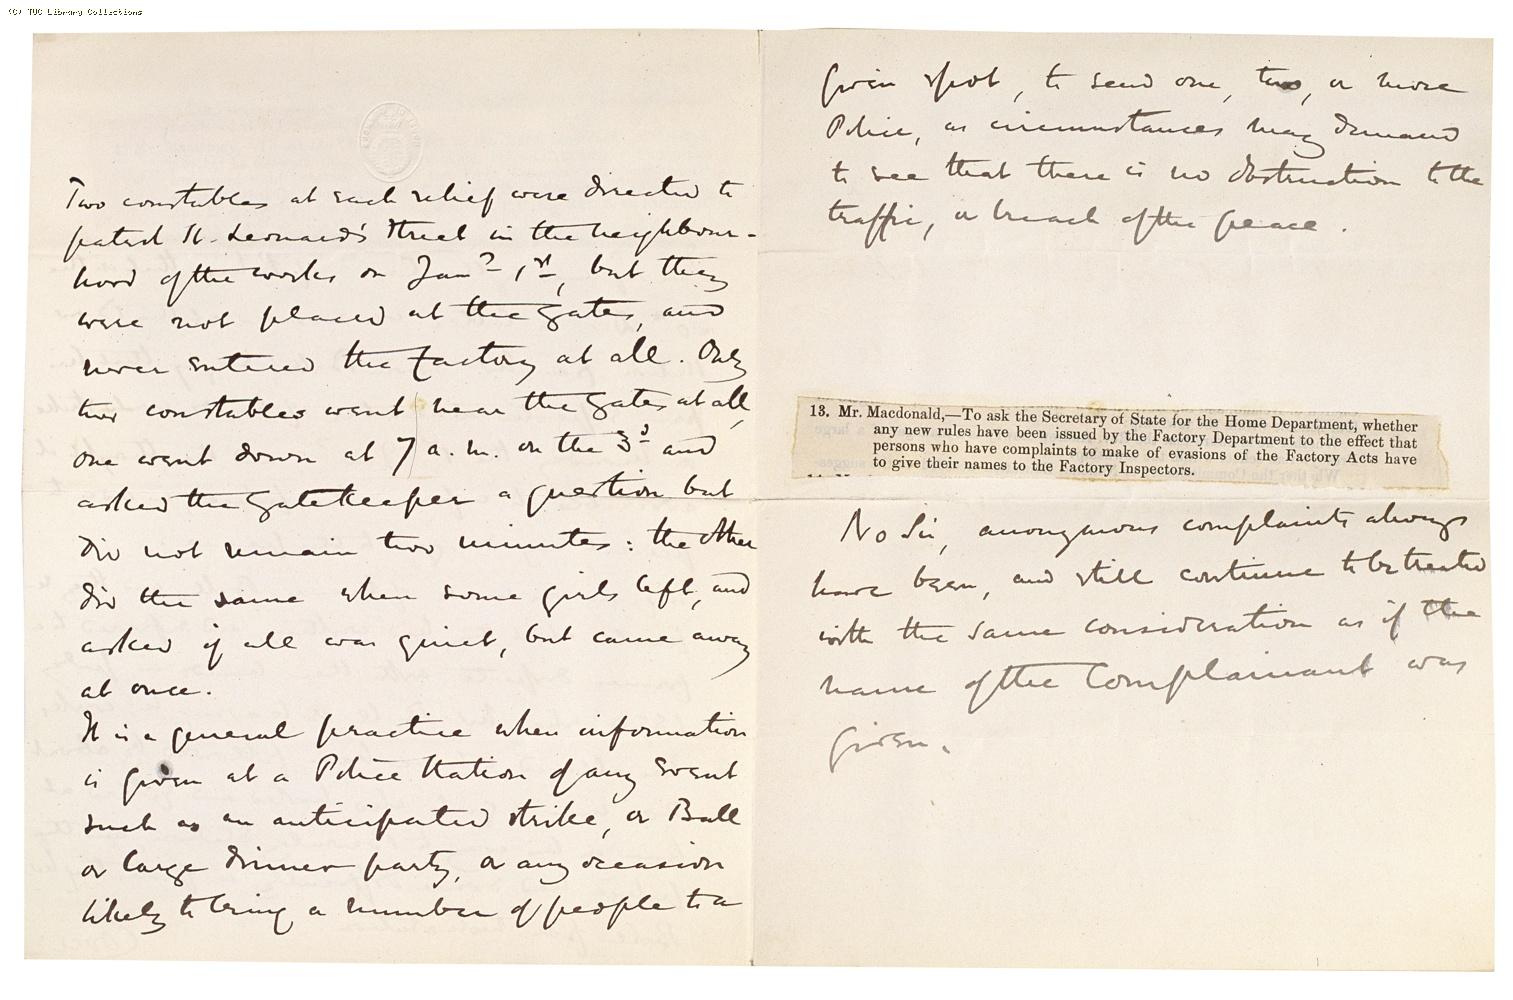 (C) TUC Library Collections
Two constables at each relief were directed to
patrol St. Leonard's Street in the neighbour-
hood of the works on Jany 1st, but they
were not placed at the gates, and
never entered the factory at all. Only
two constables went near the gates at all,
one went down at 7 a.m. on the 3d and
asked the gatekeeper a question but
did not remain two minutes: the other
did the same when some girls left, and
asked if all was quiet, but came away
at once.
It is a general practice when information
is given at a Police Station of any event
such as an anticipated strike, or Ball
or large dinner party, or any occasion
likely to bring a number of people to a
given spot, to send one, two, or more
Police, as circumstances may demand
to see that there is no obstruction to the
traffic, or breach of the peace.
13. Mr. Macdonald,—To ask the Secretary of State for the Home Department, whether
any new rules have been issued by the Factory Department to the effect that
persons who have complaints to make of evasions of the Factory Acts have
to give their names to the Factory Inspectors.
No Sir, anonymous complaints always
have been, and still continue to be treated
with the same consideration as if the
name of the Complainant was
given.